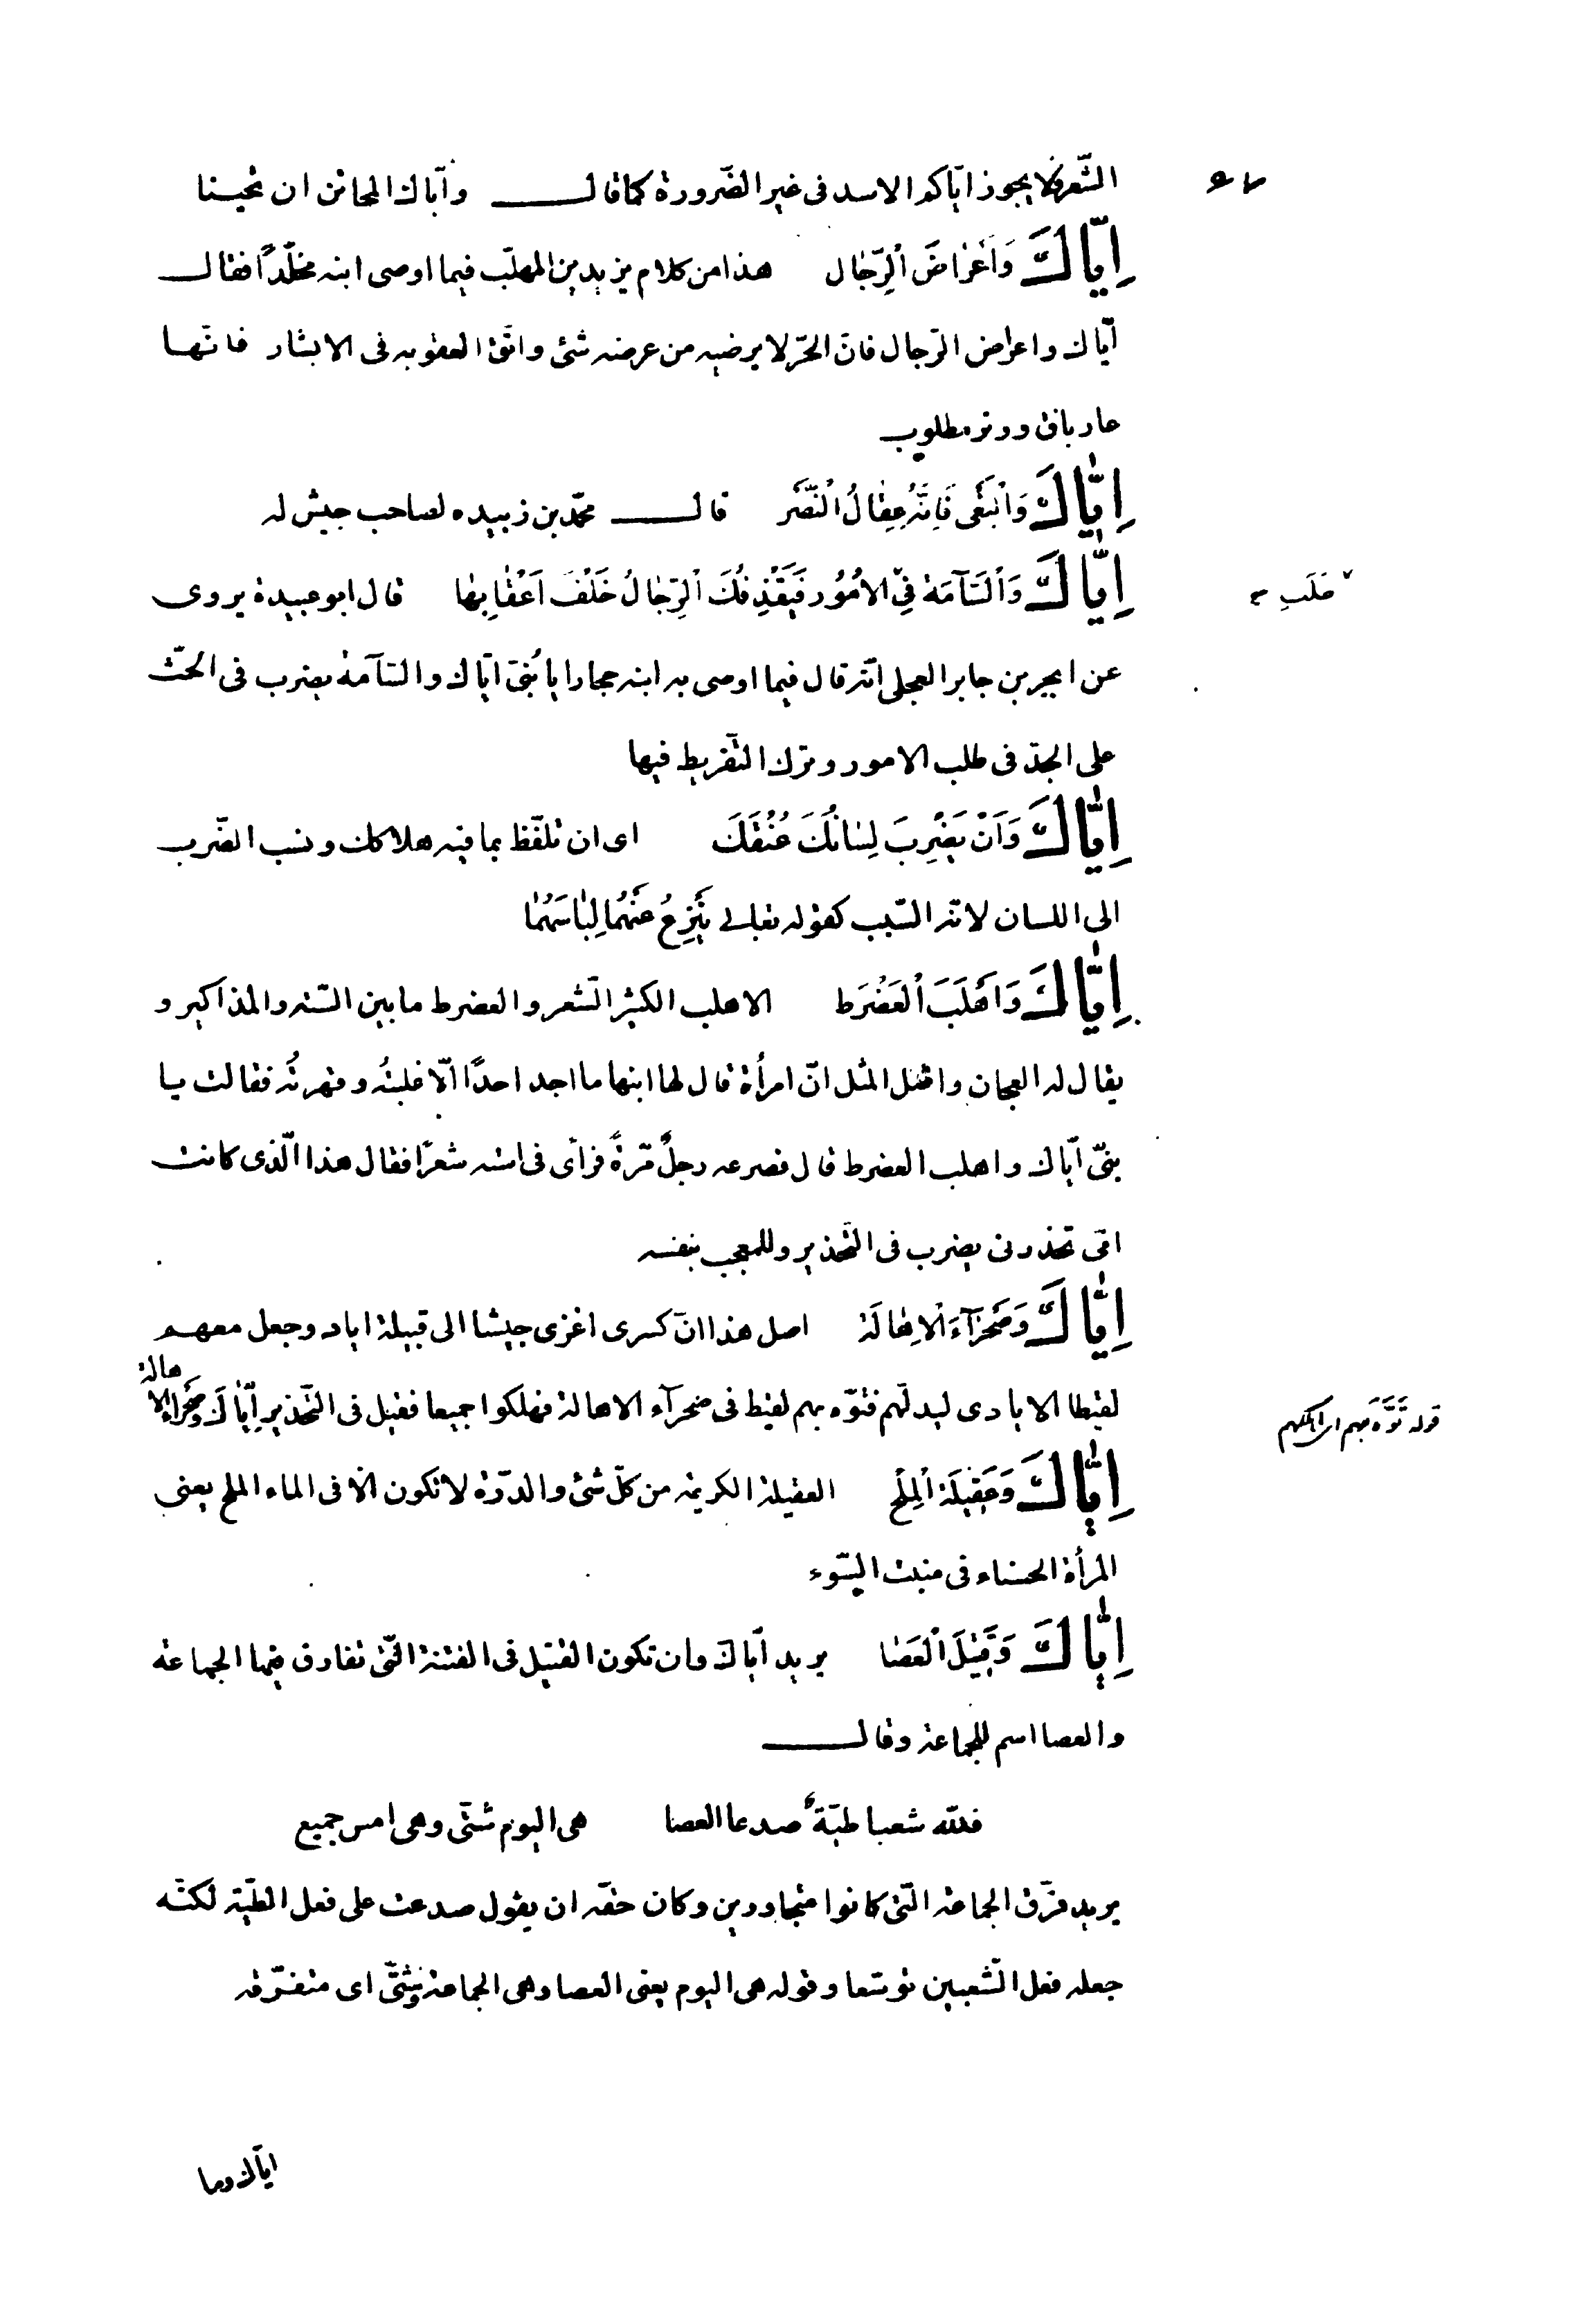 الشّعر فلا يجوز ايّاكم الاسد فى غير الضّرورة كما قال وايّاك المحائن ان تحينا
اِيّاكَ وَاَعْرَاضَ اَلرِّجٰال هذا من كلام يزيد بن المهلّب فيما اوصى ابنه مخلّدًا فقال
ايّاك واعراض الرّجال فانّ الحرّ لا يرضيه من عرضه شئ واتّق العقوبه فى الابشار فانّها
عار باق ووتر مطلوب
اِيّٰاكَ وَاَلْبَغْىَ فَاِنَّهُ عِقٰالُ اْلنَّصْر قال محمّد بن زبيده لصاحب جيش له
اِيّٰاكَ وَاَلسَّآمَةَ فِي الاُمُوُر فَيَقْذِفُكَ اَلرِّجٰالُ خَلْفَ اَعْقٰابِهٰا قال ابو عبيدة يروى
عن ابجر بن جابر العجلى انّه قال فيما اوصى به ابنه حجارا يا بُنىّ ايّاك والسّآمة يضرب فى الحثّ
على الجدّ فى طلب الامور وترك التّفريط فيها
اِيّٰاكَ وَاَنْ يَضْرِبَ لِسٰانُكَ عُنُقَكَ اى ان تلفّظ بما فيه هلاكك ونسب الضّرب
الى اللسان لانّه السّبب كقوله تعالى يَنْزِعُ عَنْهُمٰا لِبٰاسَهُمٰا
اِيّٰاكَ وَاَهْلَبَ اْلعَضْرَط الاهلب الكثير الشّعر والعضرط ما بين السّته والمذاكير و
يقال له العجان واصل المثل انّ امرأة قال لها ابنها ما اجد احدًا الّا غلبتُه وقهرتُه فقالت يا
بنىّ ايّاك واهلب العضرط قال فصرعه رجلٌ مرّةً فرأى فى استه شعرًا فقال هذا الّذى كانت
امّى تحذرنى يضرب فى التّحذير وللمعجب بنفسه
اِيّٰاكَ وَصَحْرَآءَ اْلاِهٰالَة اصل هذا انّ كسرى اغزى جيشا الى قبيلة اياد وجعل معهم
لقيطا الايادى ليدلّهم فتوّه بهم لقيط فى صحرآء الاهالة فهلكوا جميعا فقيل فى التّحذير اِيّٰاكَ وصَحْرَاءَ الاهالة
قوله تَوَّهَ بهم اى اهلكهم
اِيّٰاكَ وَعَقِيلَةَ اْلمِلْح العقيلة الكريمة من كلّ شئ والدرّة لا تكون الّا فى الماء الملح يعنى
المرأة الحسناء فى منبت السّوء
اِيّٰاكَ وَقَتِيْلَ اْلعَصٰا يريد ايّاك وان تكون القتيل فى الفتنة الّتى تفارق فيها الجماعة
والعصا اسم للجماعة وقال
فللّه شعبا طيّةٌ صدعا العصا هى اليوم شتّى وهى امس جميع
يريد فرّق الجماعة الّتى كانوا متجاورين وكان حقّه ان يقول صدعت على فعل الطيّة لكنّه
جعله فعل الشّعبين توسّعا وقوله هى اليوم يعنى العصا وهى الجماعة وشتّى اى متفرّقه
ايّاك وما